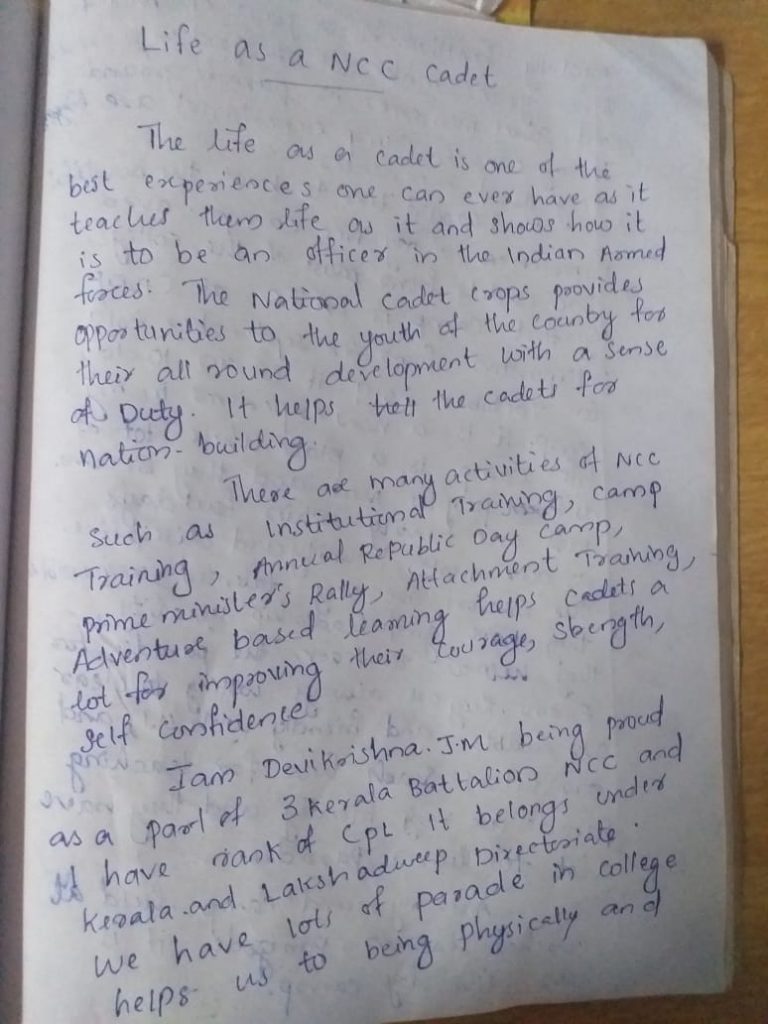 Life as a NCC cadet
The life as a cadet is one of the
best experiences one can ever have as it
teaches them life as it and shows how it
is to be an officer in the Indian Armed
forces. The National cadet crops provides
opportunities to the youth of the country for
their all round development with a sense
of Duty. It helps the cadets for
nation-building.
There are many activities of NCC
such as Institutional Training, camp
Training, Annual Republic Day camp,
prime minister's Rally, Attachment Training,
Adventure based learning helps cadets a
lot for improving their courage, strength,
self confidence
Iam Devikrishna.J.M being proud
as a part of 3 kerala Battalion NCC and
I have rank of CPL It belongs under
kerala.and Lakshadweep Directoriate.
We have lots of parade in college
helps us to being physically and